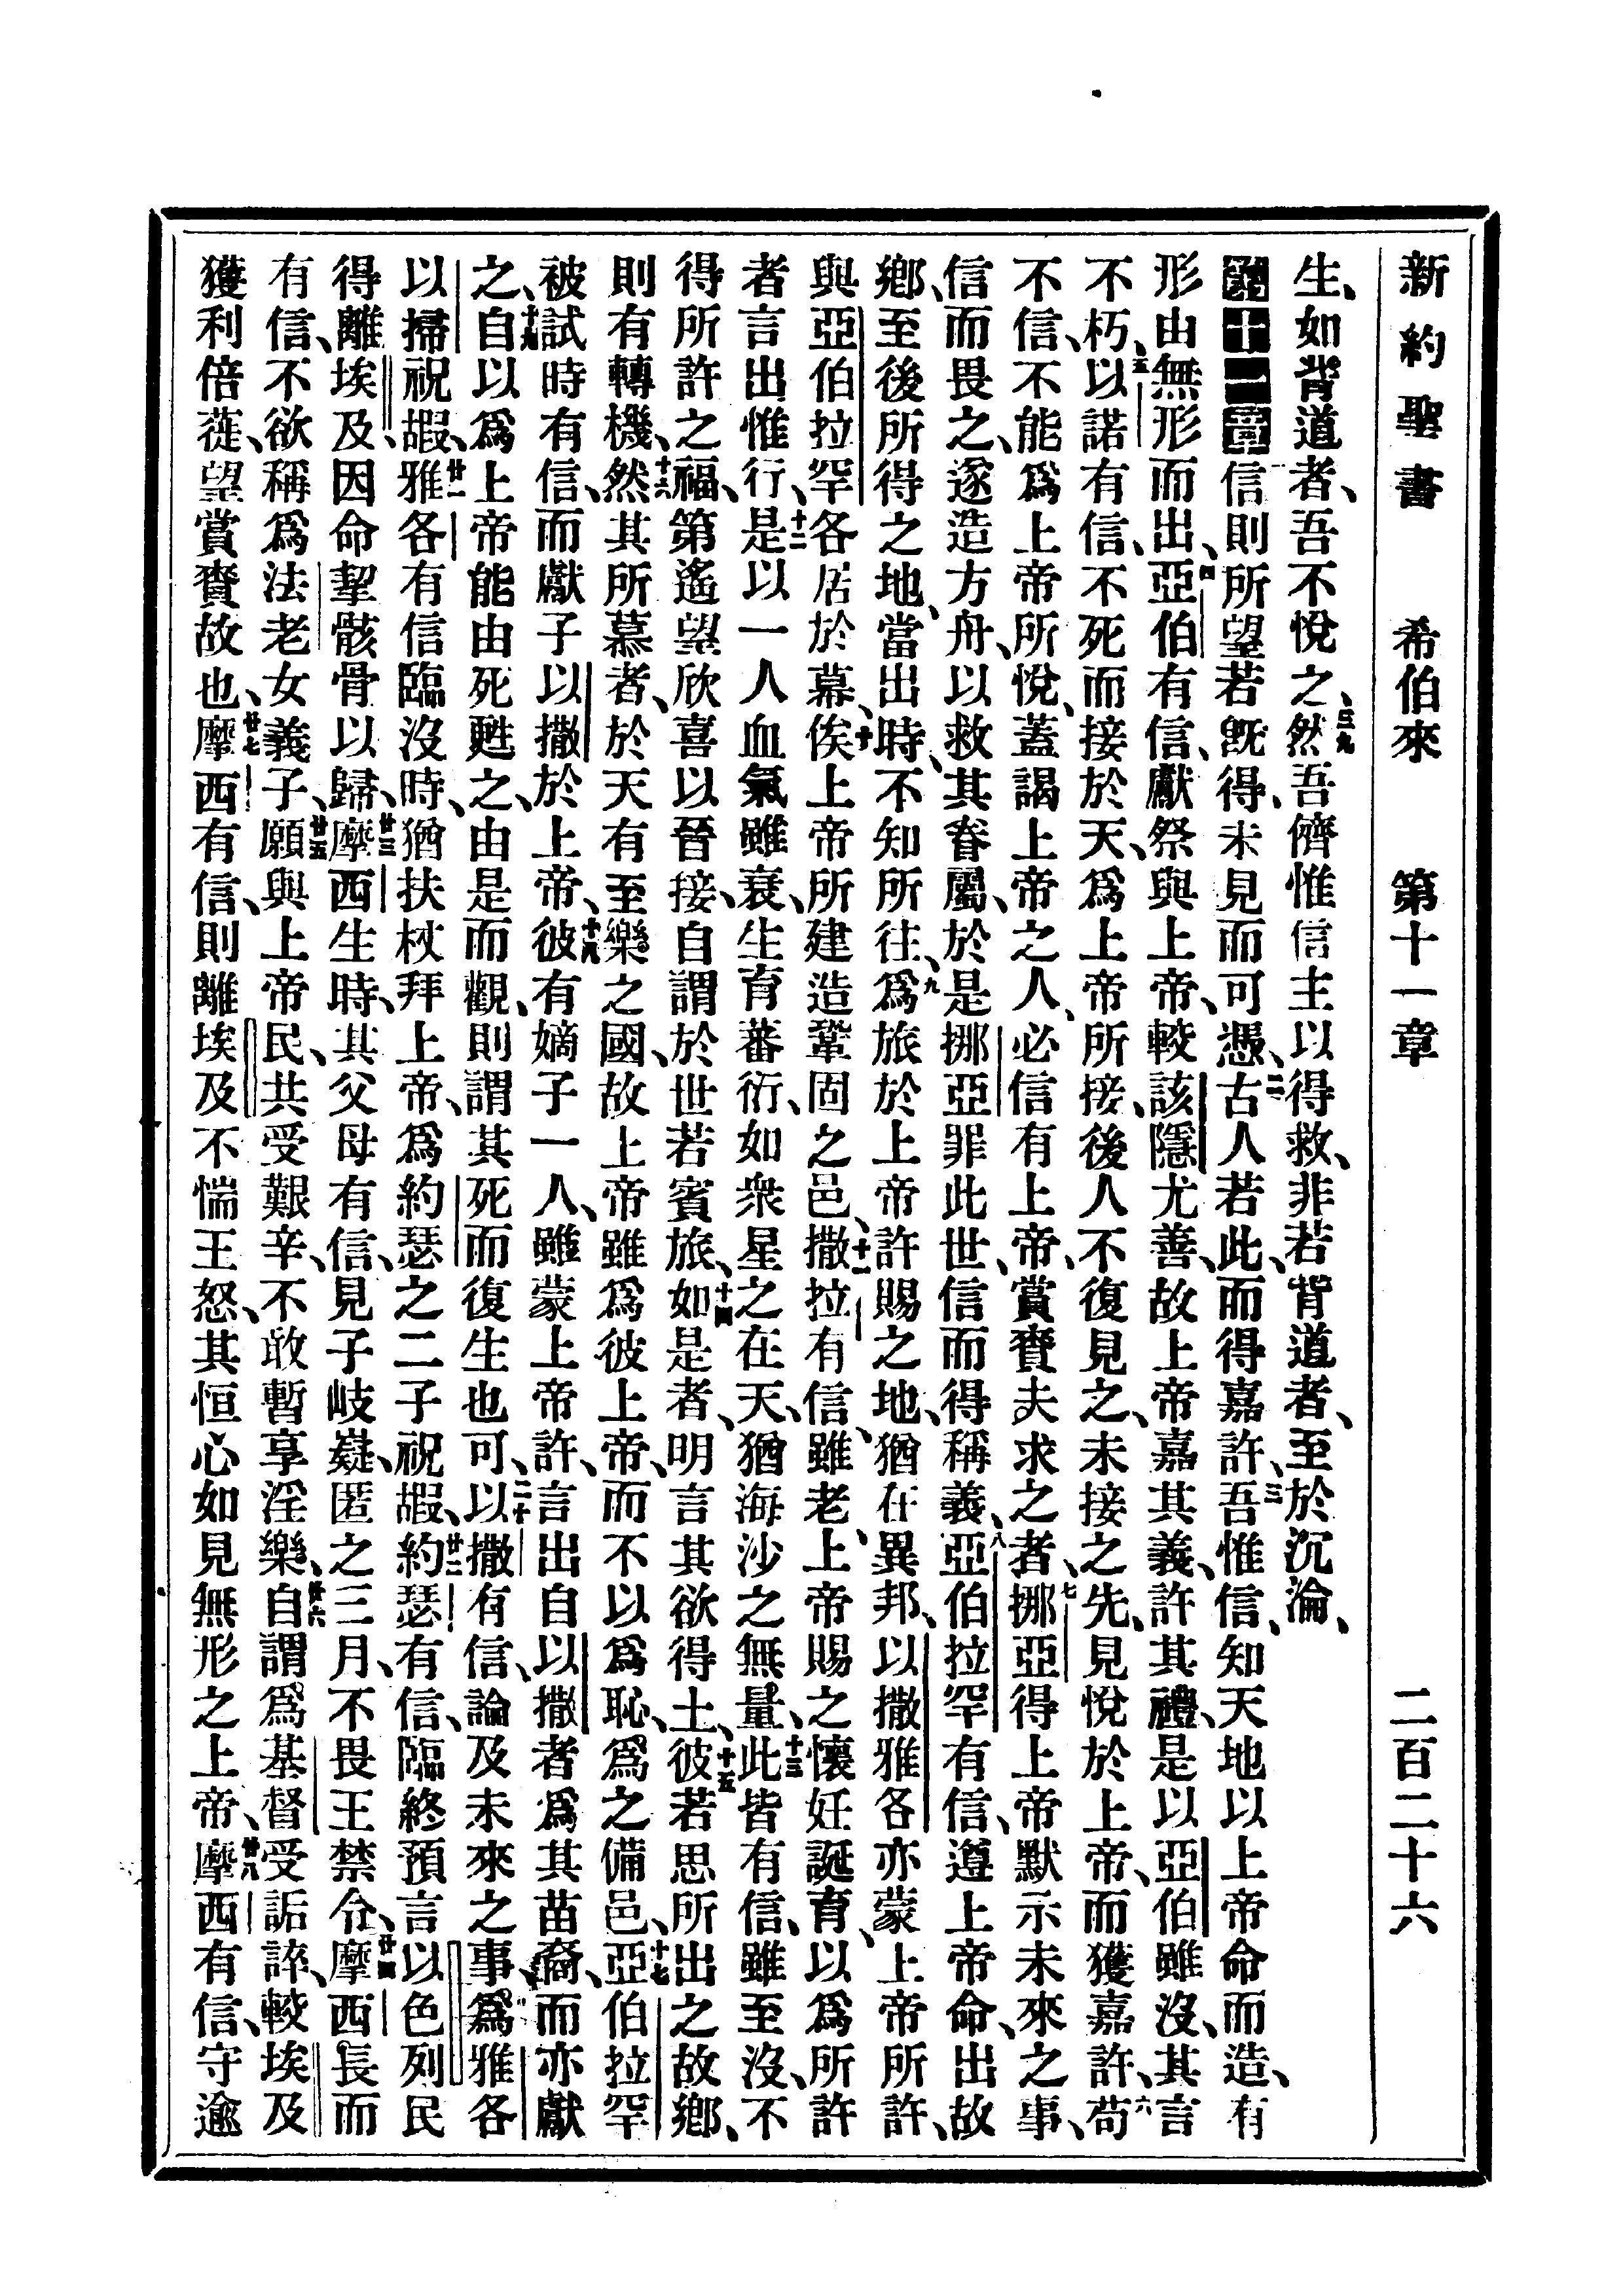 新約聖書 希伯來 第十一章 二百二十六
生、如背道者、吾不悅之、三九然吾儕惟信主以得救、非若背道者、至於沉淪、
第十一章信則所望若旣得、未見而可憑、二古人若此、而得嘉許、三吾惟信、知天地以上帝命而造、有
形由無形而出、四亞伯有信、獻祭與上帝、較該隱尤善、故上帝嘉其義、許其禮、是以亞伯雖沒、其言
不朽、五以諾有信、不死而接於天、爲上帝所接、後人不復見之、未接之先、見悅於上帝、而獲嘉許、六苟
不信、不能爲上帝所悅、蓋謁上帝之人、必信有上帝、賞賚夫求之者、七挪亞得上帝默示未來之事、
信而畏之、遂造方舟、以救其眷屬、於是挪亞罪此世、信而得稱義、八亞伯拉罕有信、遵上帝命、出故
鄉、至後所得之地、當出時、不知所往、九爲旅於上帝許賜之地、猶在異邦、以撒雅各亦蒙上帝所許、
與亞伯拉罕各居於幕、十俟上帝所建造鞏固之邑、十一撒拉有信、雖老、上帝賜之懷妊誕育、以爲所許
者言出惟行、十二是以一人血氣雖衰、生育蕃衍、如衆星之在天、猶海沙之無量、十三此皆有信、雖至沒、不
得所許之福、第遙望欣喜以晉接、自謂於世若賓旅、十四如是者、明言其欲得土、十五彼若思所出之故鄉、
則有轉機、十六然其所慕者、於天有至樂之國、故上帝雖爲彼上帝、而不以爲恥、爲之備邑、十七亞伯拉罕
被試時有信、而獻子以撒於上帝、十八彼有嫡子一人、雖蒙上帝許、言出自以撒者爲其苗裔、而亦獻
之、十九自以爲上帝能由死甦之、由是而觀、則謂其死而復生也可、二十以撒有信、論及未來之事、爲雅各
以掃祝嘏、廿一雅各有信臨沒時、猶扶杖拜上帝、爲約瑟之二子祝嘏、廿二約瑟有信、臨終預言以色列民
得離埃及、因命挈骸骨以歸、廿三摩西生時、其父母有信、見子岐嶷、匿之三月、不畏王禁令、廿四摩西長而
有信、不欲稱爲法老女義子、廿五願與上帝民、共受艱辛、不敢暫享淫樂、廿六自謂爲基督受詬誶、較埃及
獲利倍蓰、望賞賚故也、廿七摩西有信、則離埃及不惴王怒、其恒心如見無形之上帝、廿八摩西有信、守逾